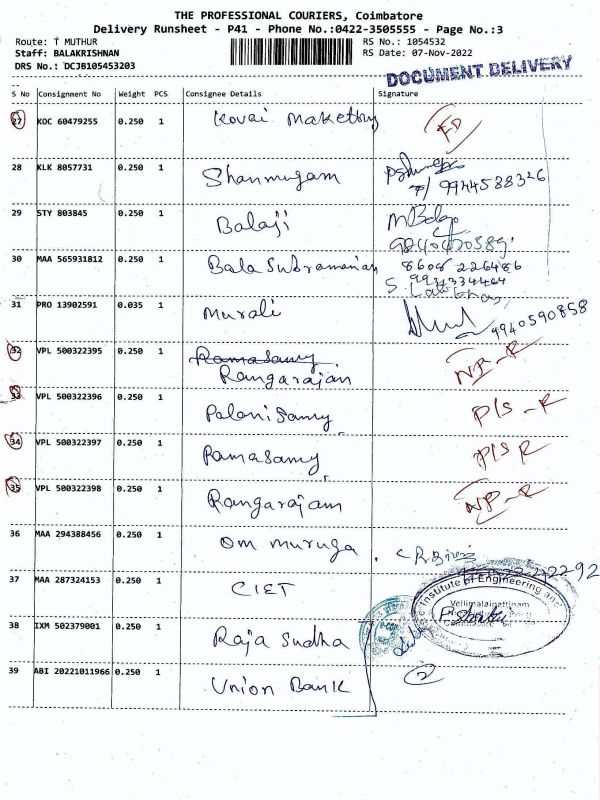 THE PROFESSIONAL COURIERS, Coimbatore
Delivery Runsheet - P41 - Phone No.:0422-3505555 - Page No.:3
Route: T MUTHUR RS No.: 1054532
Staff: BALAKRISHNAN RS Date: 07-Nov-2022
DRS No.: DCJB105453203
DOCUMENT DELIVERY
S No Consignment No Weight PCS Consignee Details Signature
27 KOC 60479255 0.250 1 Kovai Maketting
28 KLK 8057731 0.250 1 Shanmugam 9944588326
29 STY 803845 0.250 1 Balaji MBalaji
9840420589
30 MAA 565931812 0.250 1 Bala Subramanian 8608 226486
9994334464
31 PRO 13902591 0.035 1 Murali 9940590858
32 VPL 500322395 0.250 1 Ramasamy NP-R
Rangarajan
33 VPL 500322396 0.250 1 Palanisamy P/S-R
34 VPL 500322397 0.250 1 Ramasamy P/S R
35 VPL 500322398 0.250 1 Rangarajam NP-R
36 MAA 294388456 0.250 1 Om Muruga
37 MAA 287324153 0.250 1 CIET
Institute of Engineering and
Vellimalaipattinam
38 IXM 502379001 0.250 1 Raja Sudha
39 ABI 20221011966 0.250 1 Union Bank 2